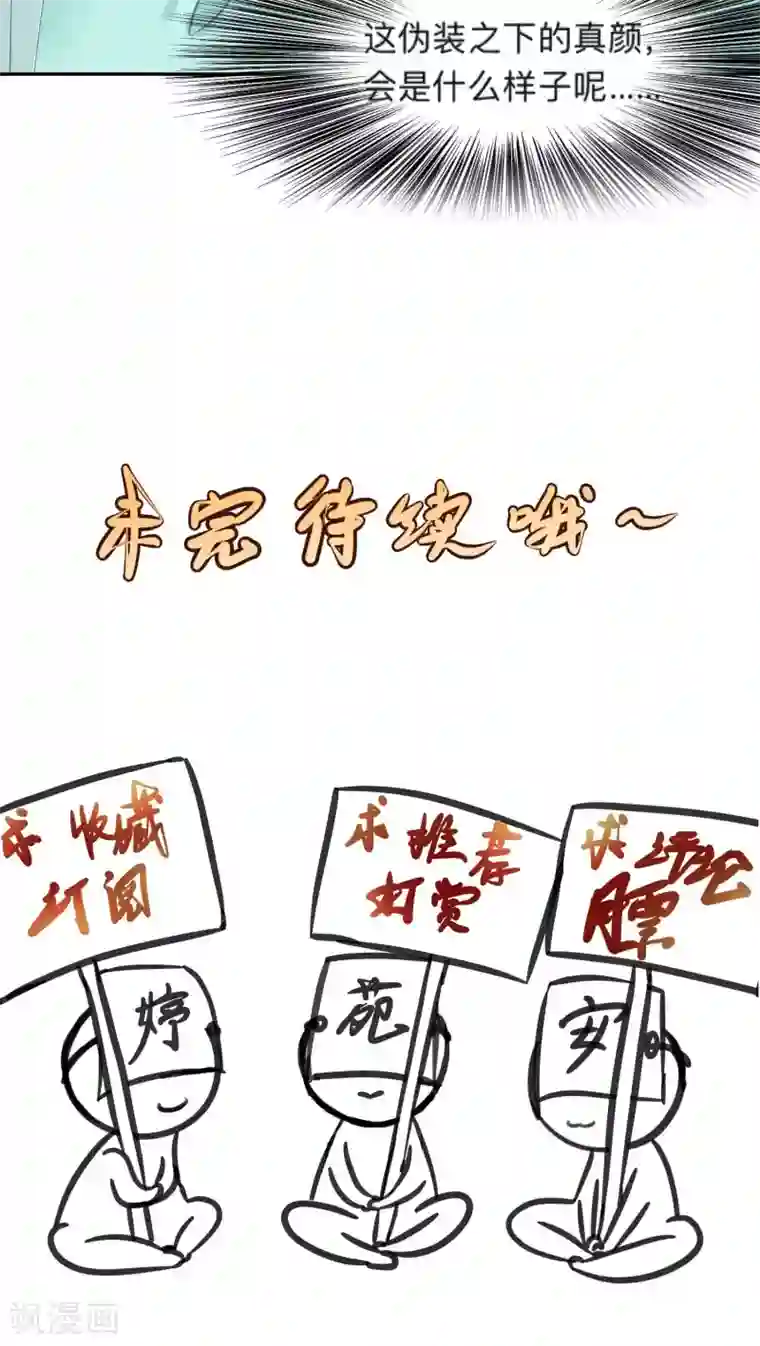 这伪装之下的真颜，
会是什么样子呢……
未完待续哦～
求收藏
订阅
求推荐
打赏
求评论
月票
婷
苑
安
飒漫画